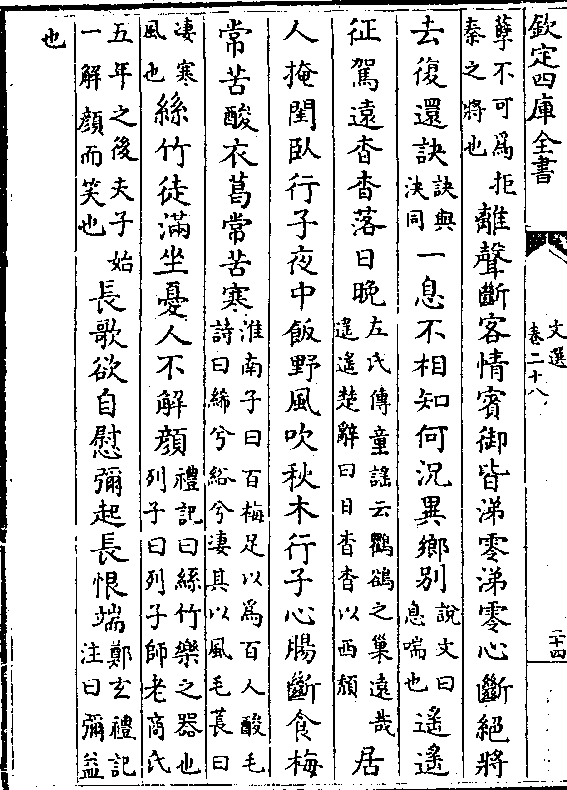 欽定四庫全書
文選
卷二十八
二十四
孽不可爲拒
秦之將也
離聲斷客情賓御皆涕零涕零心斷絕將
去復還訣
訣與
決同
一息不相知何況異鄉別
說文曰
息喘也
遙遙
征駕遠杳杳落日晚
左氏傳童謡云鸜鵒之巢遠哉
遙遙楚辭曰日杳杳以西頹
居
人掩閨臥行子夜中飯野風吹秋木行子心腸斷食梅
常苦酸衣葛常苦寒
淮南子曰百梅足以爲百人酸毛
詩曰絺兮綌兮凄其以風毛萇曰
凄寒
風也
絲竹徒滿坐憂人不解顏
禮記曰絲竹樂之器也
列子曰列子師老商氏
五年之後夫子始
一解顏而笑也
長歌欲自慰彌起長恨端
鄭玄禮記
注曰彌益
也